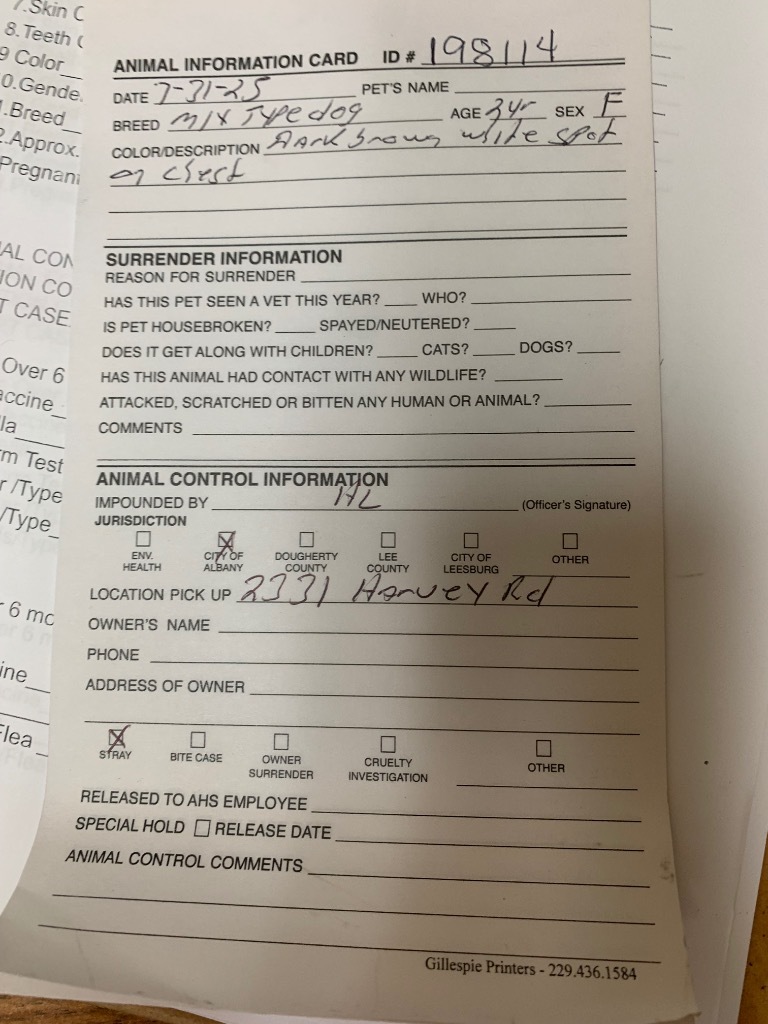 7.Skin C
8.Teeth
9 Color
0.Gende
.Breed
.Approx.
Pregnan
AL CON
ION CO
T CASE
Over 6
accine
la
m Test
r /Type
/Type
6 mo
ine
Flea
ANIMAL INFORMATION CARD ID # 198114
DATE 7-31-25 PET'S NAME
BREED Mix Type dog AGE 3yr SEX F
COLOR/DESCRIPTION Dark brown white spot
on chest
SURRENDER INFORMATION
REASON FOR SURRENDER
HAS THIS PET SEEN A VET THIS YEAR? WHO?
IS PET HOUSEBROKEN? SPAYED/NEUTERED?
DOES IT GET ALONG WITH CHILDREN? CATS? DOGS?
HAS THIS ANIMAL HAD CONTACT WITH ANY WILDLIFE?
ATTACKED, SCRATCHED OR BITTEN ANY HUMAN OR ANIMAL?
COMMENTS
ANIMAL CONTROL INFORMATION
IMPOUNDED BY HL (Officer's Signature)
JURISDICTION
ENV. HEALTH CITY OF ALBANY DOUGHERTY COUNTY LEE COUNTY CITY OF LEESBURG OTHER
LOCATION PICK UP 2331 Harvey Rd
OWNER'S NAME
PHONE
ADDRESS OF OWNER
STRAY BITE CASE OWNER SURRENDER CRUELTY INVESTIGATION OTHER
RELEASED TO AHS EMPLOYEE
SPECIAL HOLD RELEASE DATE
ANIMAL CONTROL COMMENTS
Gillespie Printers - 229.436.1584